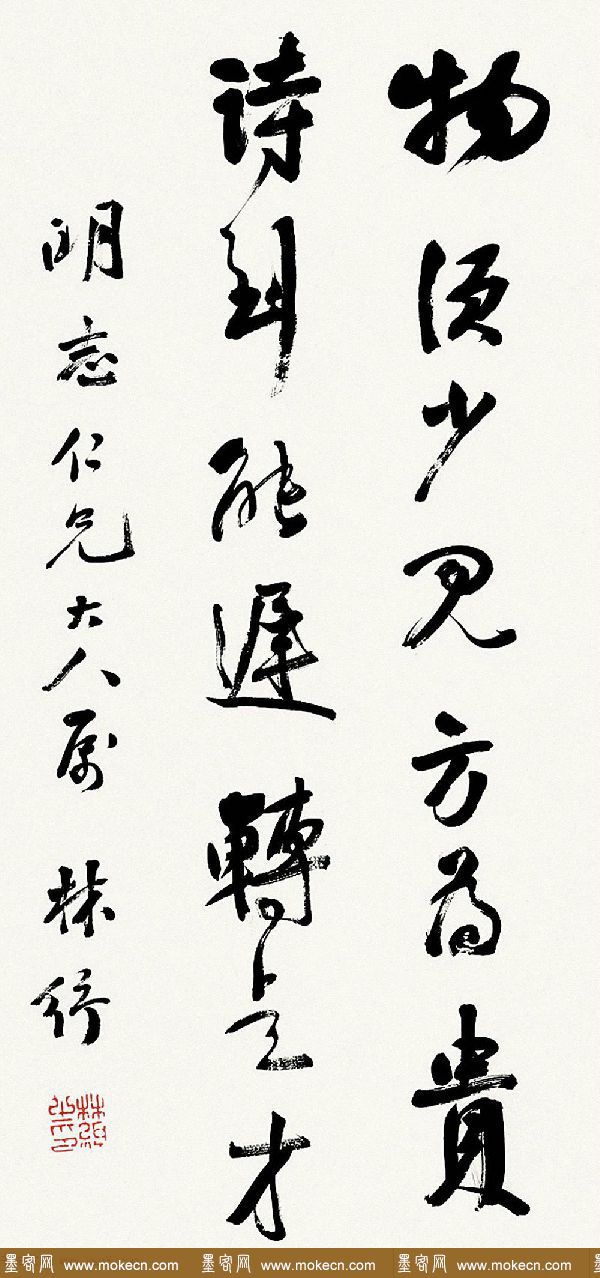 物須少見方為貴
詩到能遲轉是才
明志仁兄大人属 林紓
林紓之印
墨客网 www.mokecn.com 墨客网 www.mokecn.com 墨客网 www.mokecn.com